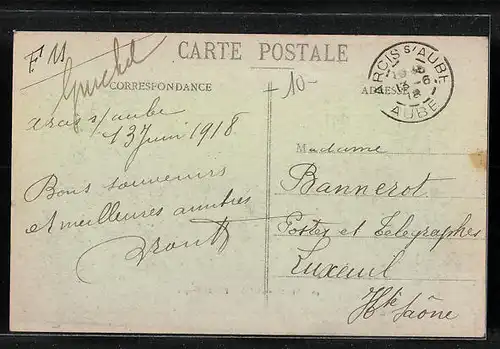 F M
Guichet
CARTE POSTALE
CORRESPONDANCE
-10-
ADRESSE
ARCIS S/AUBE
13-6
18
AUBE
Arcis s/aube
13 Juin 1918
Bons souvenirs
et meilleures amitiés
Madame
Bannerot
Postes et Telegraphes
Luxeuil
Hte Saône